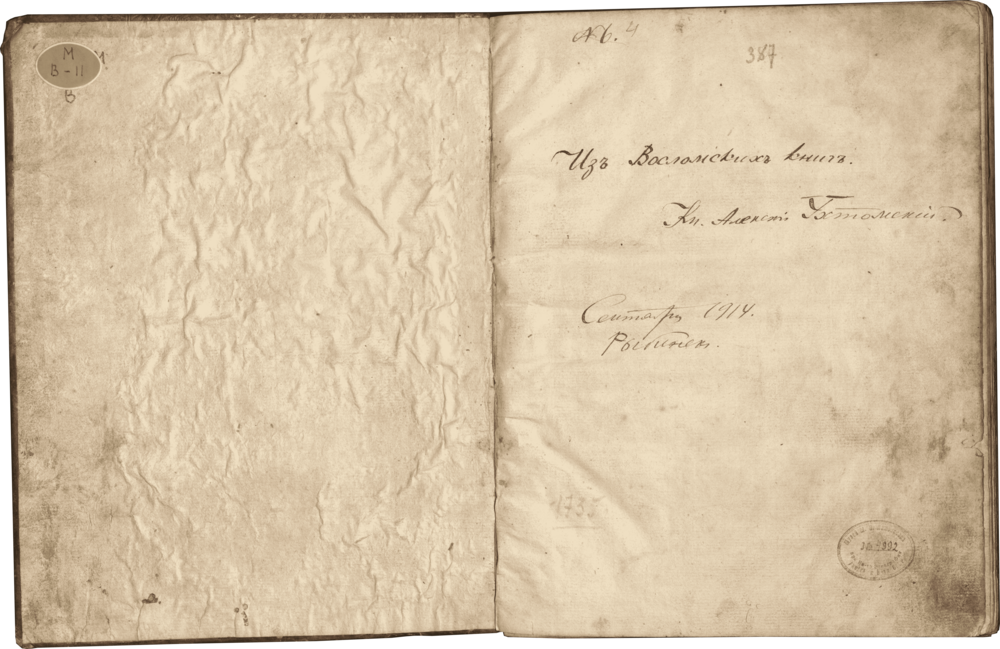 М
В - II
В
№ 6. 4
387
Изъ Восломскихъ книгъ.
Кн. Алексей Ухтомский
Сентябрь 1914.
Рыбинск.
1735